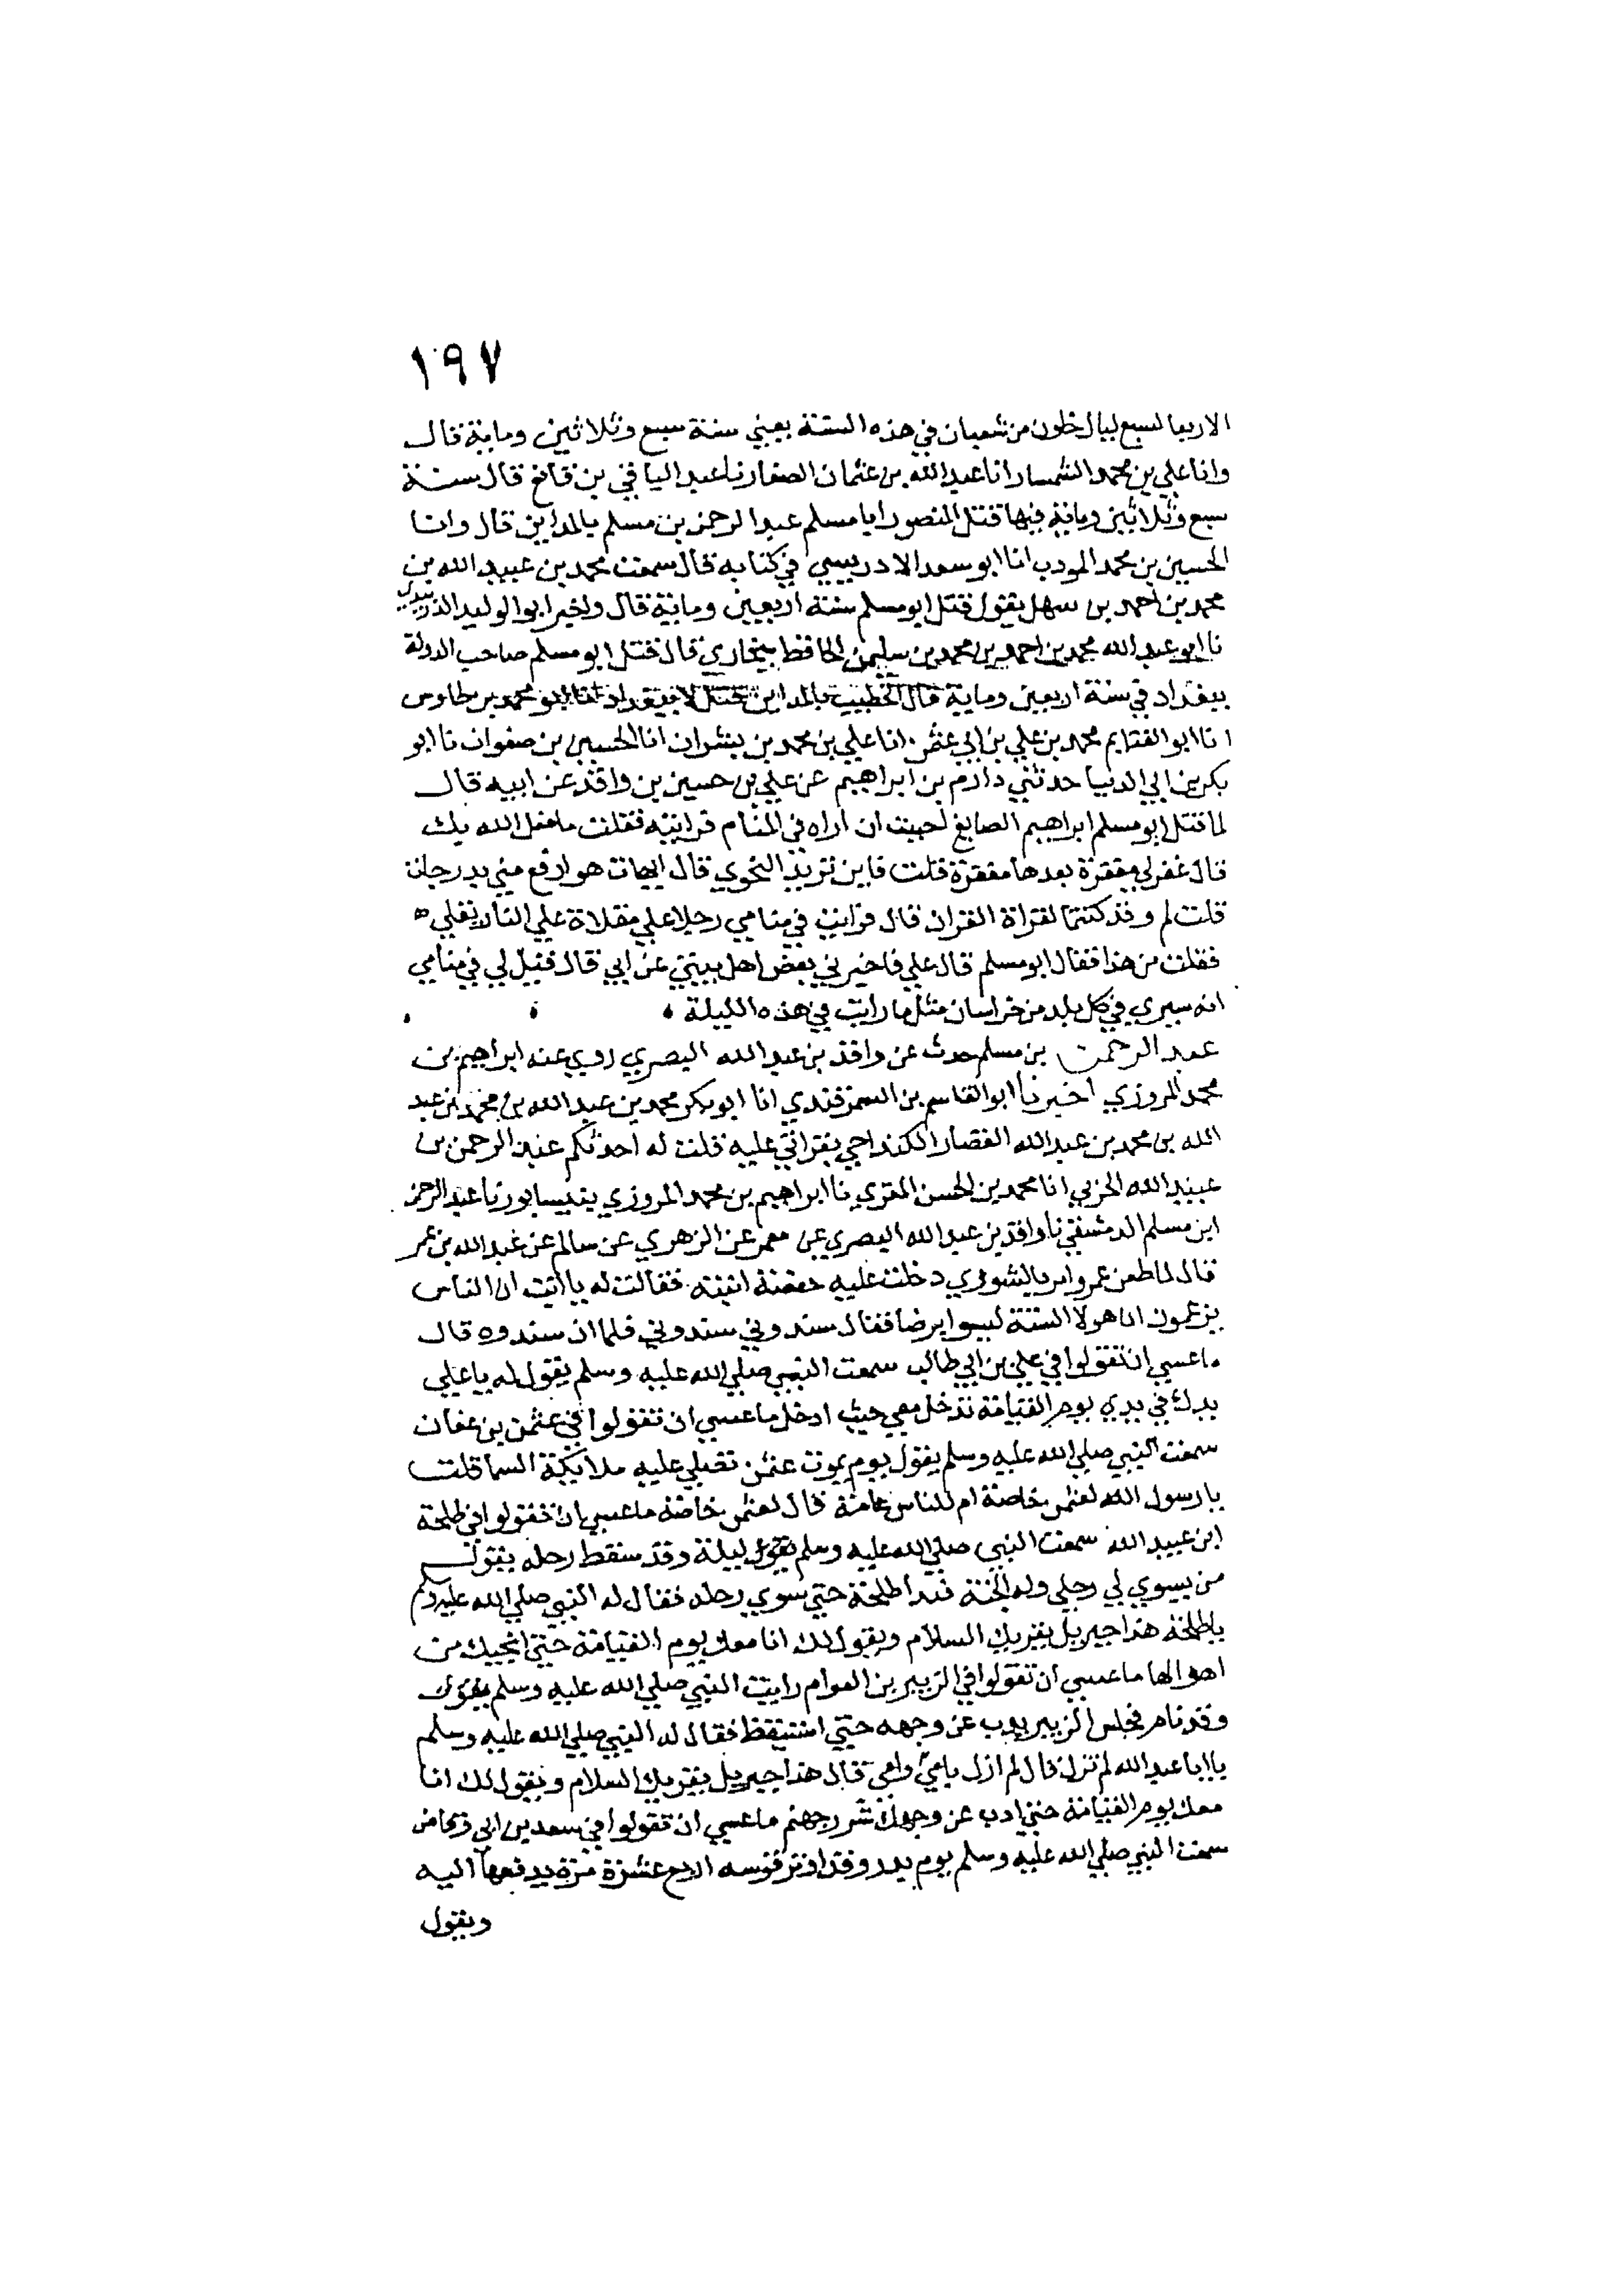 ١٩٧
الاربعا لسبع ليال خلون من شعبان في هذه السنة يعني سنة سبع وثلاثين وماية قال
وانا علي بن محمد السمسار انا عبد الله بن عثمان الصفار نا عبد الباقي بن قانع قال سنة
سبع وثلاثين وماية فيها قتل المنصور ابا مسلم عبد الرحمن بن مسلم بالمداين قال وانا
الحسين بن محمد المودب انا ابو سعد الادريسي في كتابه قال سمعت محمد بن عبيد الله بن
محمد بن احمد بن سهل يقول قتل ابو مسلم سنة اربعين وماية قال واخبر ابو الوليد الدربندي
نا ابو عبد الله محمد بن احمد بن محمد بن سليمن الحافظ ببخاري قال قتل ابو مسلم صاحب الدولة
ببغداد في سنة اربعين وماية قال الخطيب بالمداين قتل لا ببغداد انا ابو محمد بن طاوس
انا ابو الغنايم محمد بن علي بن ابي عثمن انا علي بن محمد بن بشران انا الحسين بن صفوان نا ابو
بكر بن ابي الدنيا حدثني دارم بن ابراهيم عن علي بن حسين بن واقد عن ابيه قال
لما قتل ابو مسلم ابراهيم الصايغ احببت ان اراه في المنام فرايته فقلت ما فعل الله بك
قال غفر لي مغفرة بعدها مغفرة قلت فاين يزيد النحوي قال ايهات هو ارفع مني بدرجات
قلت لم وقد كنتما لقراة القران قال فرايت في منامي رجلا علي مقلاة علي النار يغلي
فقلت من هذا فقال ابو مسلم قال علي فاخبرني بعض اهل بيتي عن ابي قال قيل لي في منامي
انه سيري في كل بلد من خراسان مثل ما رايت في هذه الليلة
عبد الرحمن بن مسلم حدث عن واقد بن عبد الله البصري روي عنه ابراهيم بن
محمد المروزي اخبرنا ابو القاسم بن السمرقندي انا ابو بكر محمد بن عبد الله بن محمد بن عبد
الله بن محمد بن عبد الله القصار الكنداجي بقراتي عليه قلت له احدثكم عبد الرحمن بن
عبيد الله الحربي انا محمد بن الحسن المقري نا ابراهيم بن محمد المروزي بنيسابور نا عبد الرحمن
ابن مسلم الدمشقي نا واقد بن عبد الله البصري عن معمر عن الزهري عن سالم عن عبد الله بن عمر
قال لما طعن عمر وامر بالشوري دخلت عليه حفصة ابنته فقالت له يا ابت ان الناس
يزعمون ان هولا الستة ليسوا برضا فقال سندوني سندوني فلما ان سندوه قال
ما عسي ان تقولوا في علي بن ابي طالب سمعت النبي صلي الله عليه وسلم يقول له يا علي
يدك في يدي يوم القيامة تدخل معي حيث ادخل ما عسي ان تقولوا في عثمن بن عفان
سمعت النبي صلي الله عليه وسلم يقول يوم يموت عثمن تصلي عليه ملايكة السما قلت
يا رسول الله لعثمن خاصة ام للناس عامة قال لعثمن خاصة ما عسي ان تقولوا في طلحة
ابن عبيد الله سمعت النبي صلي الله عليه وسلم يقول ليلة وقد سقط رحله يقول
من يسوي لي رحلي وله الجنة فبدا طلحة حتي سوي رحله فقال له النبي صلي الله عليه وسلم
يا طلحة هذا جبريل يقريك السلام ويقول لك انا معك يوم القيامة حتي انجيك من
اهوالها ما عسي ان تقولوا في الزبير بن العوام رايت النبي صلي الله عليه وسلم يقول
وقد نام فجلس الزبير يذب عن وجهه حتي استيقظ فقال له النبي صلي الله عليه وسلم
يا ابا عبد الله لم تزل قال لم ازل بابي وامي قال هذا جبريل يقريك السلام ويقول لك انا
معك يوم القيامة حتي اذب عن وجهك شرر جهنم ما عسي ان تقولوا في سعد بن ابي وقاص
سمعت النبي صلي الله عليه وسلم يوم بدر وقد اوتر قوسه اربع عشرة مرة يدفعها اليه
ويقول